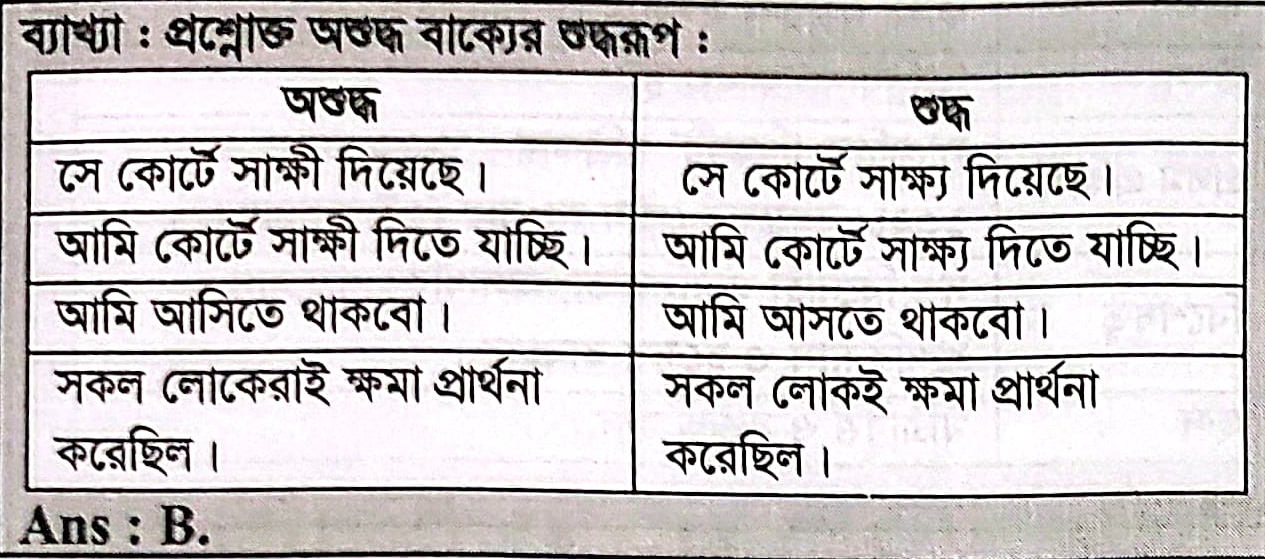 ব্যাখ্যা : প্রশ্নোক্ত অশুদ্ধ বাক্যের শুদ্ধরূপ :
অশুদ্ধ শুদ্ধ
সে কোর্টে সাক্ষী দিয়েছে। সে কোর্টে সাক্ষ্য দিয়েছে।
আমি কোর্টে সাক্ষী দিতে যাচ্ছি। আমি কোর্টে সাক্ষ্য দিতে যাচ্ছি।
আমি আসিতে থাকবো। আমি আসতে থাকবো।
সকল লোকেরাই ক্ষমা প্রার্থনা সকল লোকই ক্ষমা প্রার্থনা
করেছিল। করেছিল।
Ans : B.